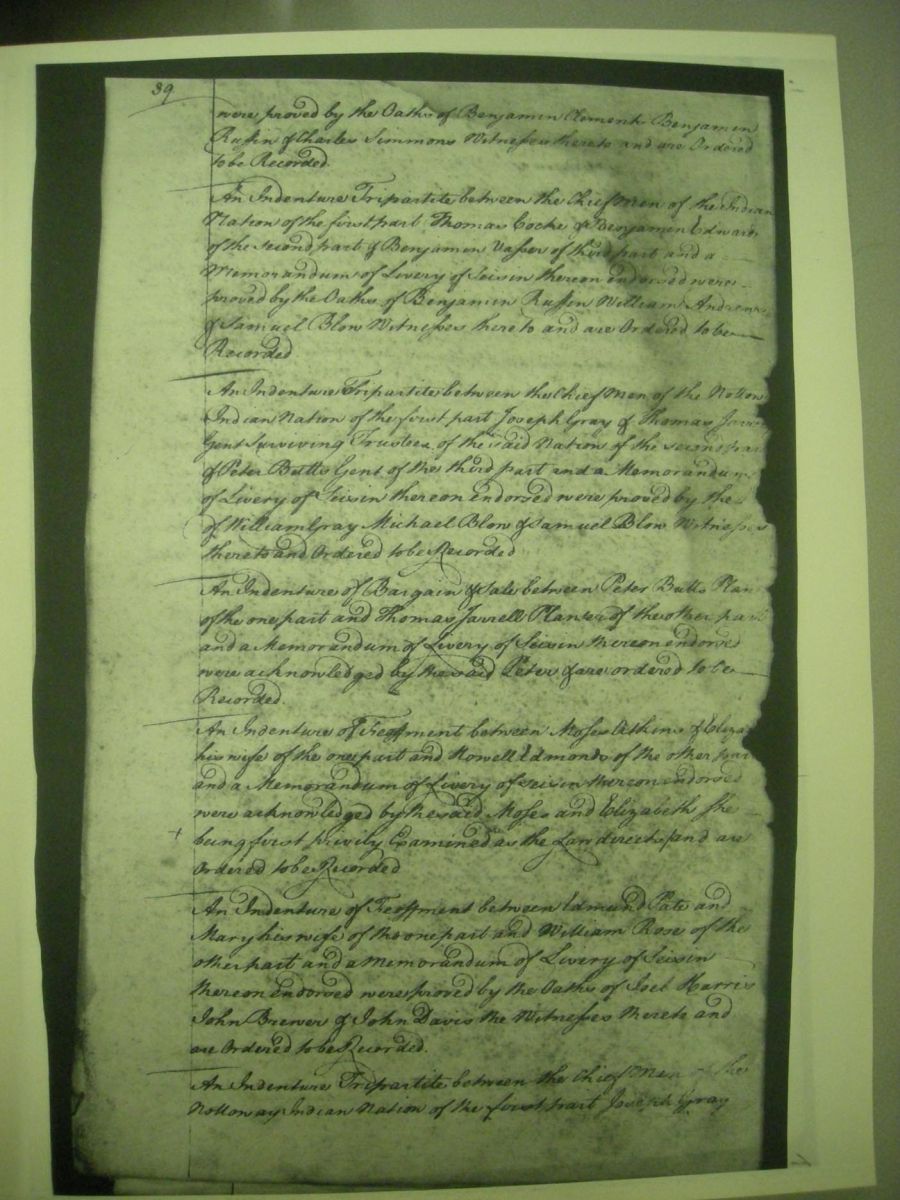 39
were proved by the Oaths of Benjamin Clement Benjamin
Ruffin & Charles Simmons Witnesses thereto and are Ordered
to be Recorded
An Indenture Tripartite between the Chief Men of the Indian
Nation of the first part Thomas Cocke & Benjamin Edwards
of the second part & Benjamin Vasser of third part and a
Memorandum of Livery of Seisin thereon endorsed were
proved by the Oaths of Benjamin Ruffin William Andrews
& Samuel Blow Witnesses thereto and are Ordered to be
Recorded
An Indenture Tripartite between the Chief Men of the Nottow
Indian Nation of the first part Joseph Gray & Thomas Jarr
Gent Surviving Trustees of the said Nation of the second part
& Peter Butts Gent of the third part and a Memorandum
of Livery of Seisin thereon endorsed were proved by the
of William Gray Michael Blow & Samuel Blow Witnesses
thereto and Ordered to be Recorded
An Indenture of Bargain & Sale between Peter Butts Plan
of the one part and Thomas Jarrell Planter of the other part
and a Memorandum of Livery of Seisin thereon endorsed
were acknowledged by the said Peter & are ordered to be
Recorded.
An Indenture of Feoffment between Moses Atkins & Eliza
his wife of the one part and Howell Edmonds of the other part
and a Memorandum of Livery of seisin thereon endorsed
were acknowledged by the said Moses and Elizabeth She
+ being first privily Examined as the Law directs and are
Ordered to be Recorded
An Indenture of Feoffment between Edmund Pate and
Mary his wife of the one part and William Rose of the
other part and a Memorandum of Livery of Seisin
thereon Endorsed were proved by the Oaths of Joel Harris
John Brewer & John Davis the Witnesses thereto and
are Ordered to be Recorded.
An Indenture Tripartite between the Chief Men of the
Nottoway Indian Nation of the first part Joseph Gray